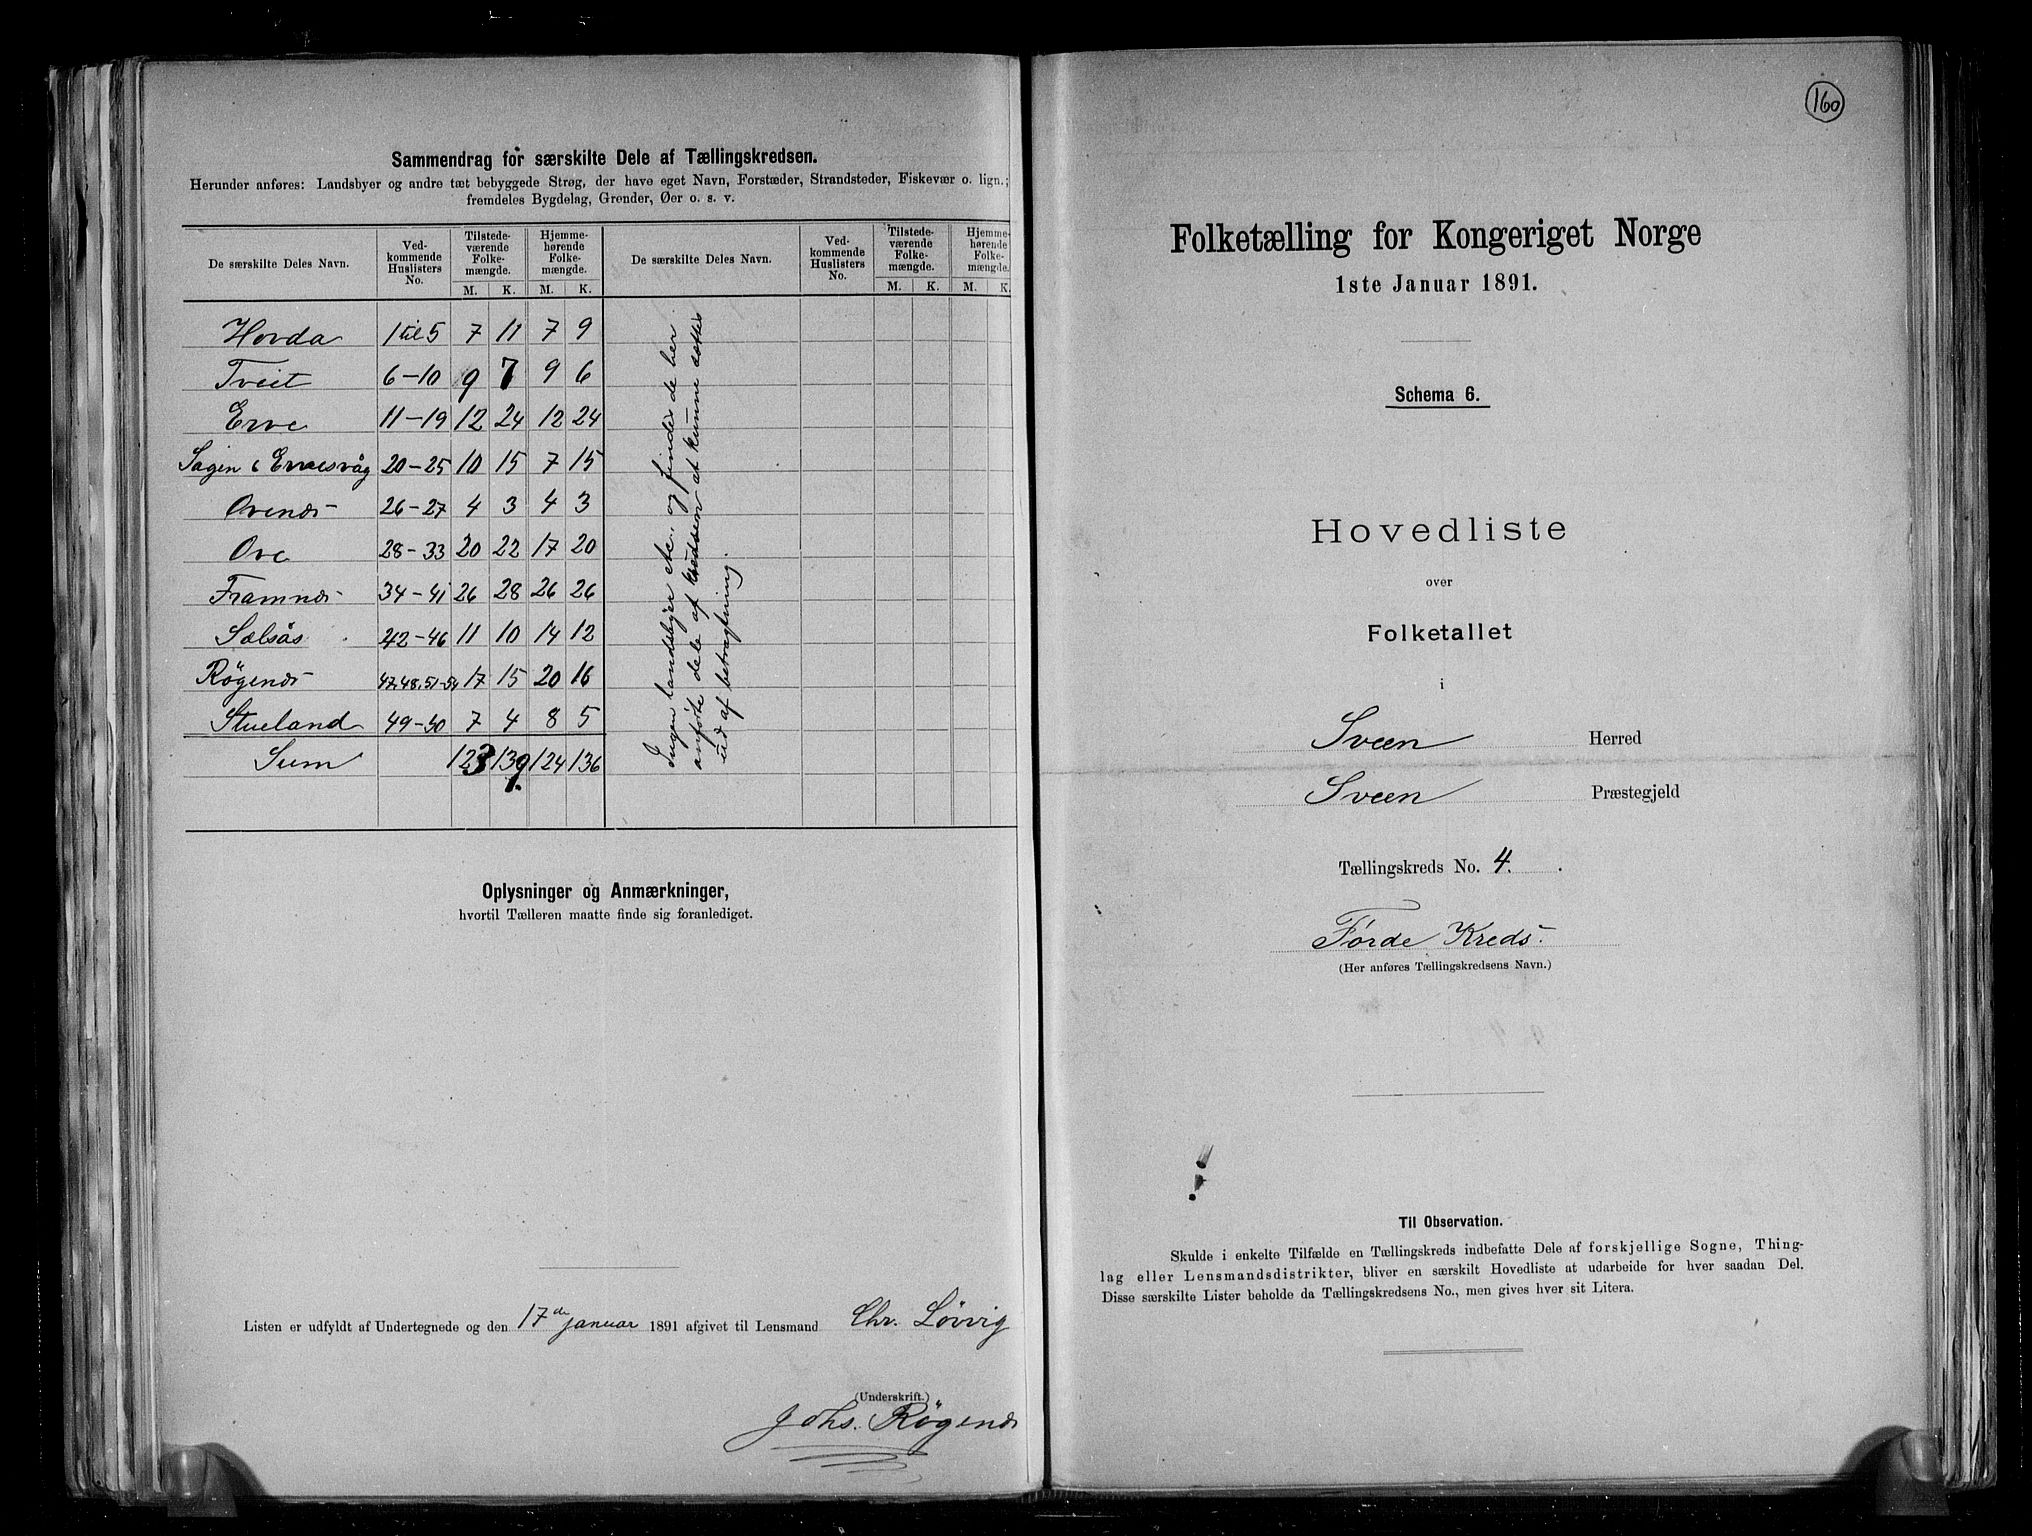 Sammendrag for særskilte Dele af Tællingskredsen.
Herunder anføres: Landsbyer og andre tæt bebyggede Strøg, der have eget Navn, Forstæder, Strandsteder, Fiskevær o. lign.;
fremdeles Bygdelag, Grender, Øer o. s. v.
De særskilte Deles Navn. Ved-kommende Huslisters No. Tilstede-værende Folke-mængde. Hjemme-hørende Folke-mængde. De særskilte Deles Navn. Ved-kommende Huslisters No. Tilstede-værende Folke-mængde. Hjemme-hørende Folke-mængde.
M. K. M. K. M. K. M. K.
Hovda 1 til 5 7 11 7 9
Tveit 6-10 9 7 9 6
Erve 11-19 12 24 12 24
Sagen i Ervesvåg 20-25 10 15 7 15
Ovenæs 26-27 4 3 4 3
Ove 28-33 20 22 17 20
Framnæs 34-41 26 28 26 26
Sælsås 42-46 11 10 14 12
Røgenæs 47.48.51-54 17 15 20 16
Stueland 49-50 7 4 8 5
Sum 123 139 124 136
Ingen landsbyer etc. og findes de her
anførte dele af kredsen at kunne sættes
ud af betragtning.
Oplysninger og Anmærkninger,
hvortil Tælleren maatte finde sig foranlediget.
Listen er udfyldt af Undertegnede og den 17de januar 1891 afgivet til Lensmand Chr. Løvvig
(Underskrift.)
Johs. Røgenæs
160
Folketælling for Kongeriget Norge
1ste Januar 1891.
Schema 6.
Hovedliste
over
Folketallet
i
Sveen Herred
Sveen Præstegjeld
Tællingskreds No. 4.
Førde Kreds.
(Her anføres Tællingskredsens Navn.)
Til Observation.
Skulde i enkelte Tilfælde en Tællingskreds indbefatte Dele af forskjellige Sogne, Thing-
lag eller Lensmandsdistrikter, bliver en særskilt Hovedliste at udarbeide for hver saadan Del.
Disse særskilte Lister beholde da Tællingskredsens No., men gives hver sit Litera.